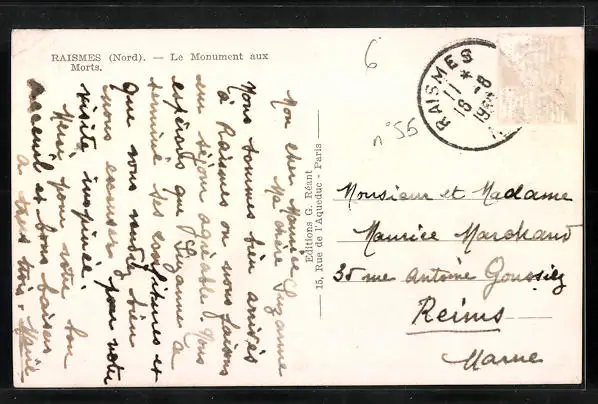 RAISMES (Nord). — Le Monument aux
Morts.
Mon cher Maurice
Ma chère Suzanne
Nous sommes bien arrivés
à Raismes ou nous faisons
un séjour agréable. Nous
espérons que Suzanne a
terminé ses confitures et
que vous rendre bien
nous comme pour notre
visite
Merci pour votre bon
accueil et bons baisers
à tous trois. Marie
Editions G. Réant
15, Rue de l'Aqueduc - Paris
6
n° 56
RAISMES
11 *
18 - 8
Monsieur et Madame
Maurice Marchand
35 rue Antoine Goussiez
Reims
Marne